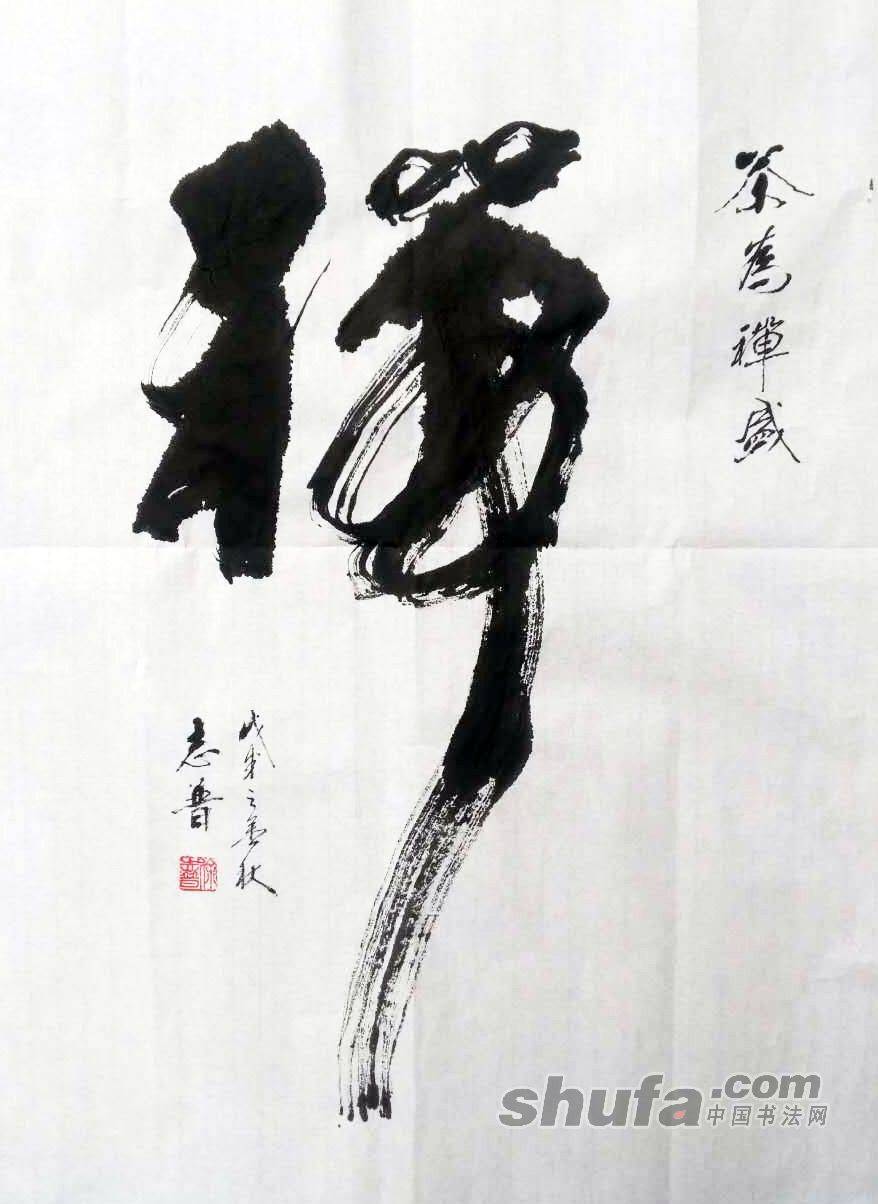 茶為禪盛
禪
戊戌之孟秋
志普
shufa.com
中国书法网